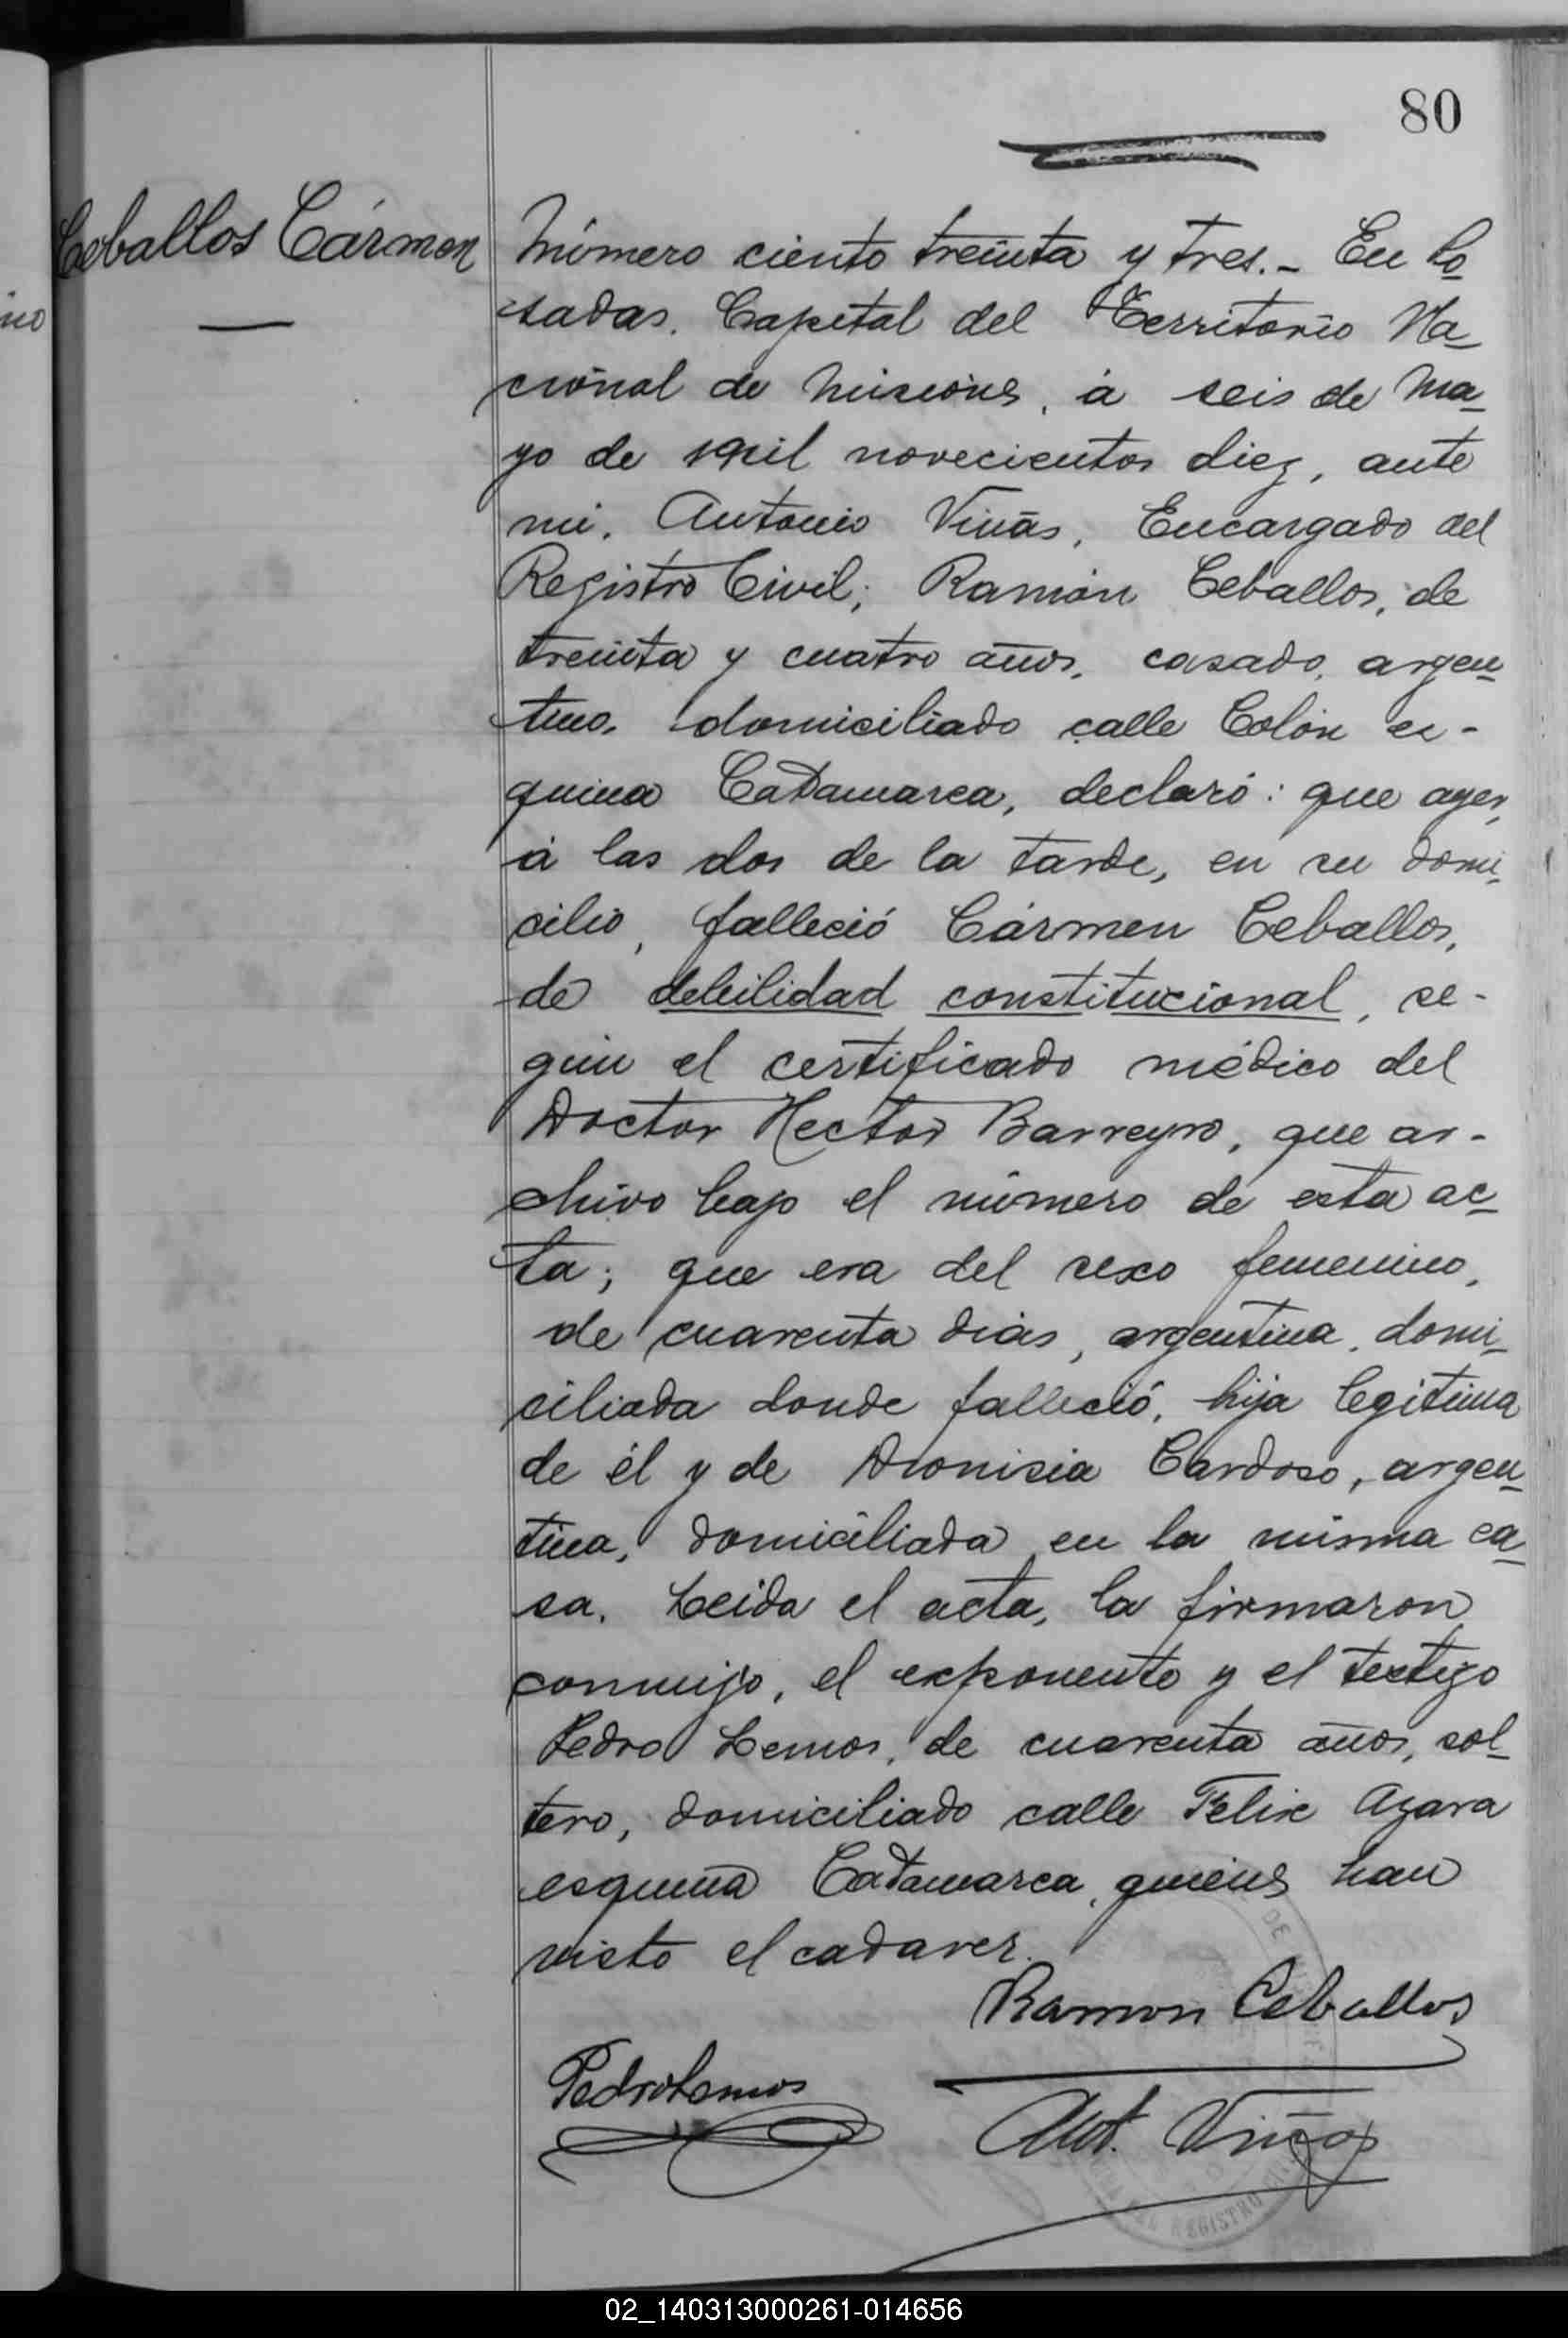 80
Ceballos Cármen
Número ciento treinta y tres.- En Po
sadas. Capital del Territorio Na
cional de Misiones, á seis de Ma
yo de mil novecientos diez, ante
mi, Antonio Viñas, Encargado del
Registro Civil; Ramón Ceballos, de
treinta y cuatro años, casado, argen
tino, domiciliado calle Colón es-
quina Catamarca, declaró: que ayer,
á las dos de la tarde, en su domi
cilio, falleció Cármen Ceballos,
de debilidad constitucional, se-
gún el certificado médico del
Doctor Hector Barreyro, que ar-
chivo bajo el número de esta ac
ta; que era del sexo femenino,
de cuarenta dias, argentina, domi
ciliada donde falleció, hija legitima
de él y de Dionisia Cardoso, argen
tina, domiciliada en la misma ca
sa. Leida el acta, la firmaron
conmigo, el exponente y el testigo
Pedro Lemos, de cuarenta años, sol
tero, domiciliado calle Felix Azara
esquina Catamarca, quienes han
visto el cadaver.
Ramon Ceballos
Pedro Lemos
Ant. Viñas
REGISTRO
02_140313000261-014656